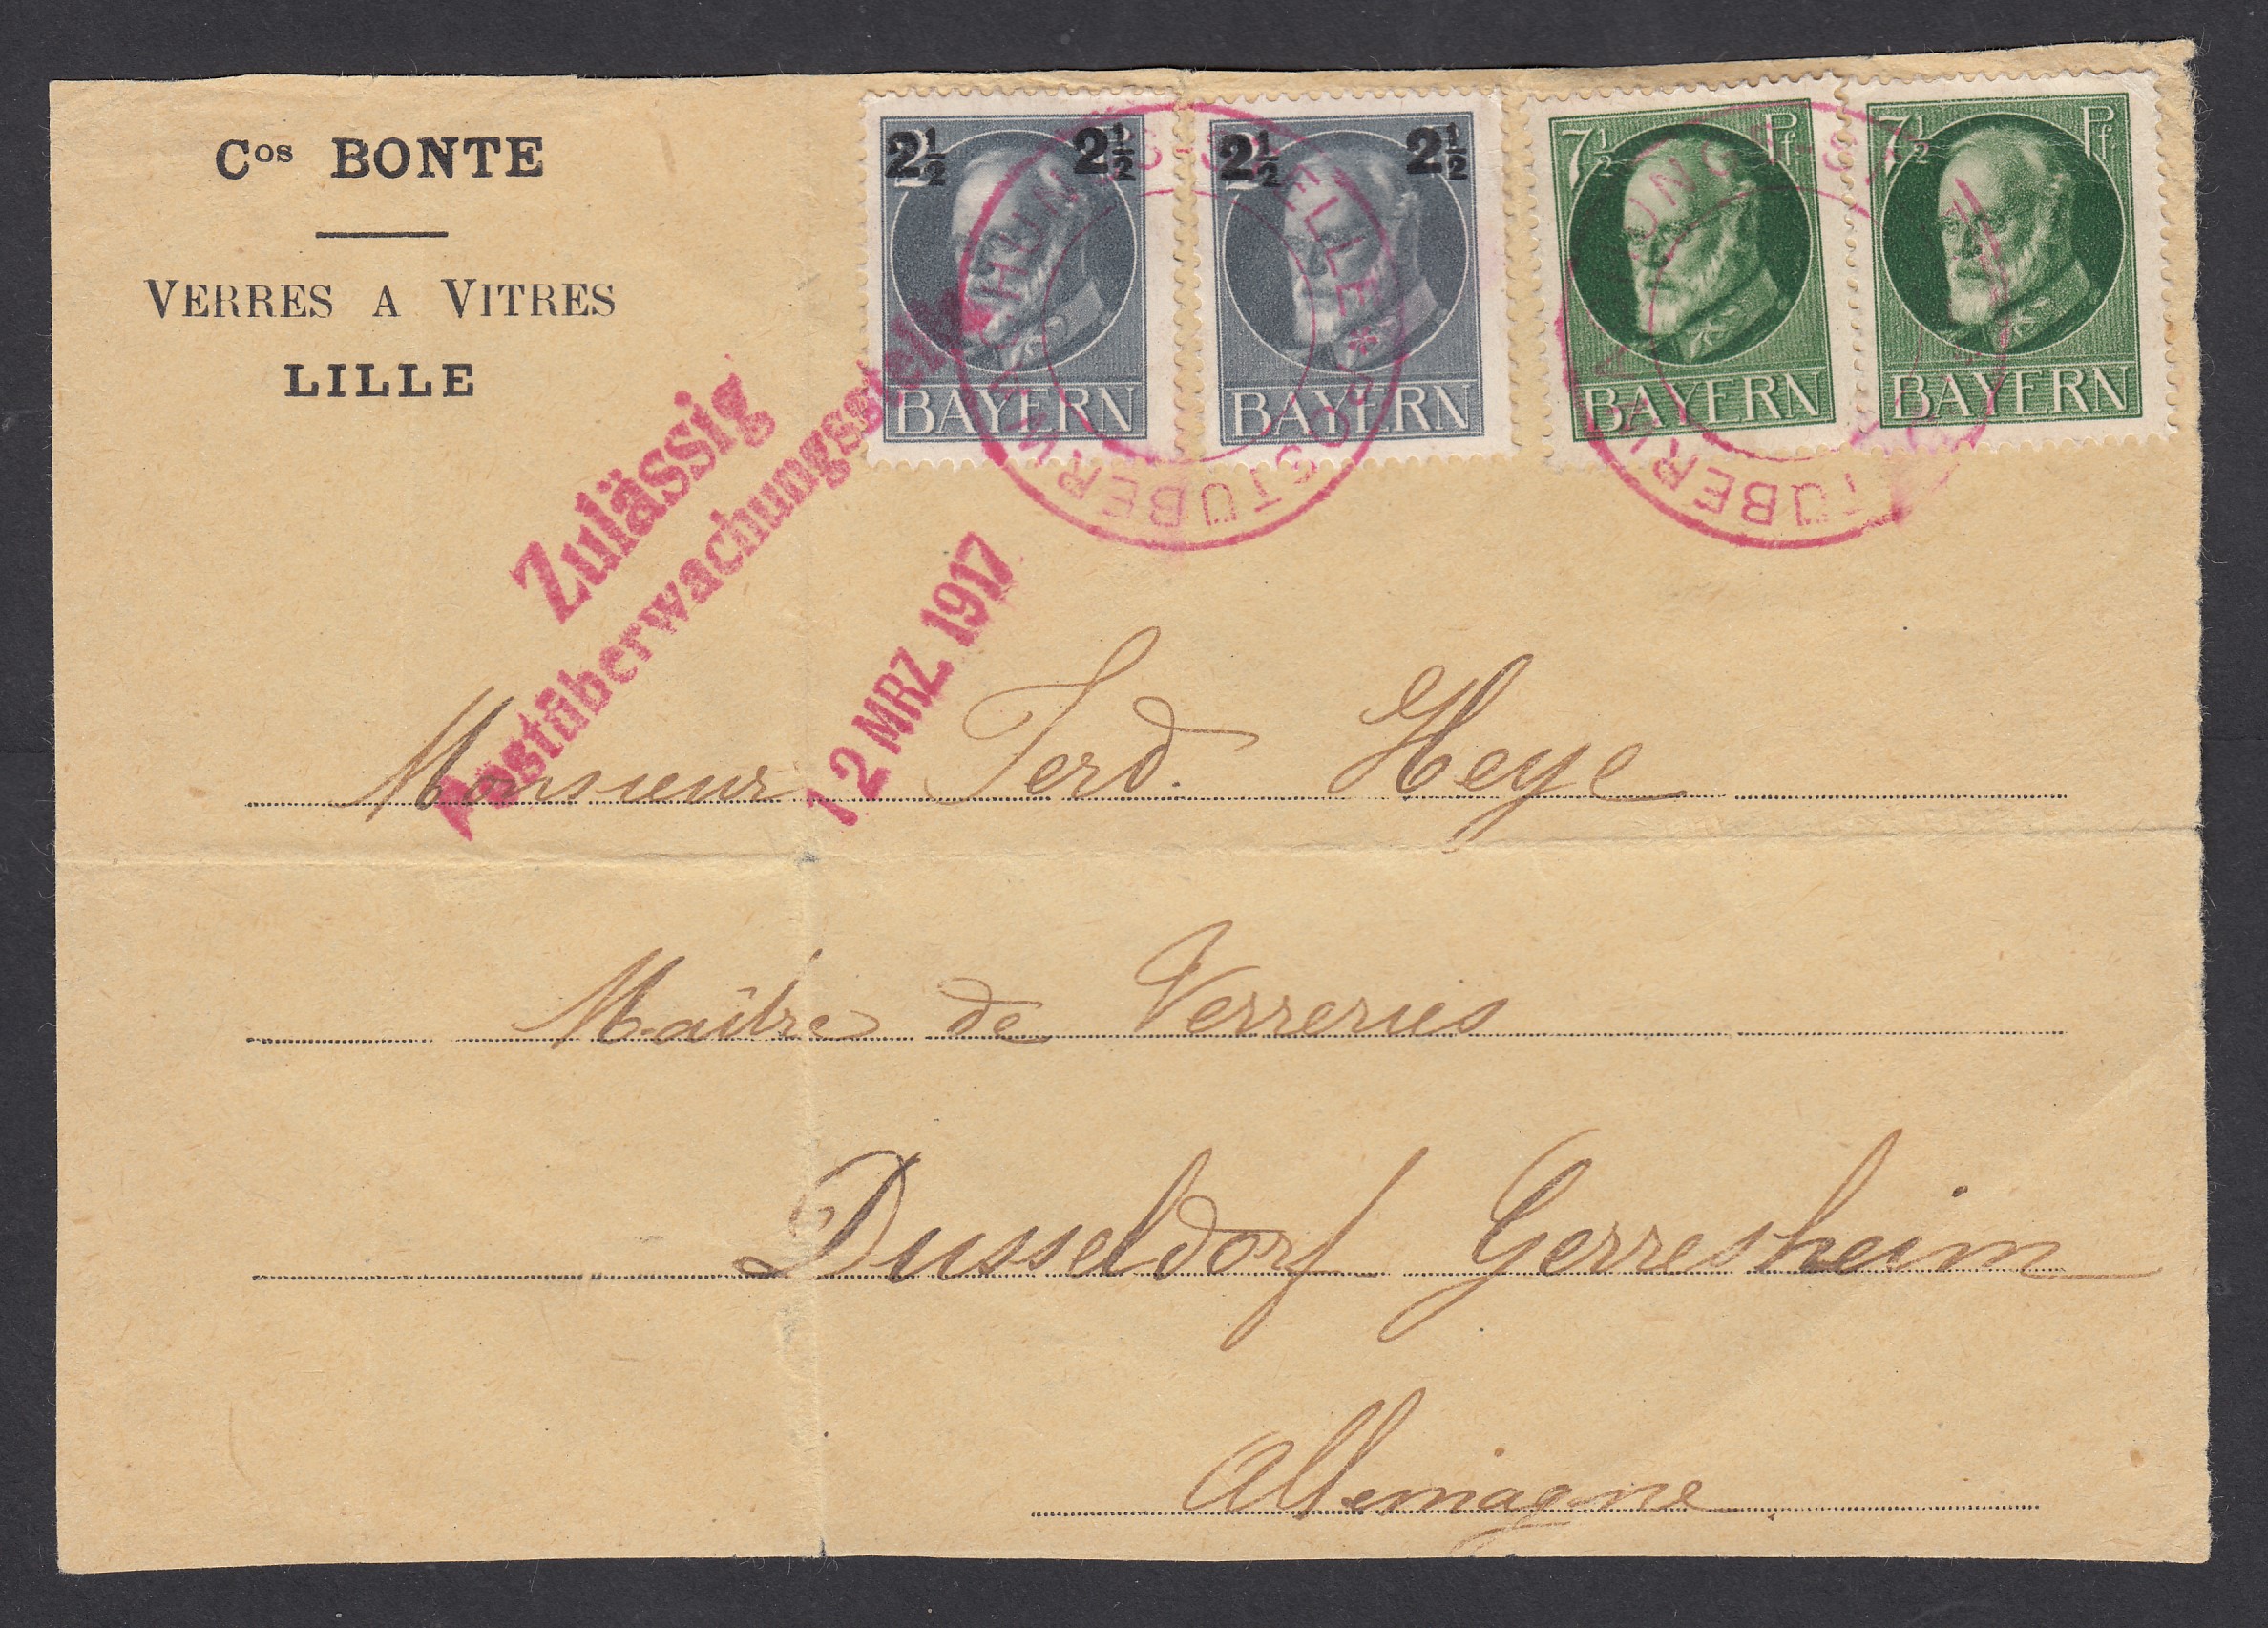 Cos BONTE
VERRES A VITRES
LILLE
2½ 2½
BAYERN
2½ 2½
BAYERN
7½ Pf.
BAYERN
7½ Pf.
BAYERN
POSTÜBERWACHUNGSSTELLE *
Zulässig
Postüberwachungsstelle
12 MRZ 1917
Monsieur Ferd. Heye
Maître de Verreries
Dusseldorf Gerresheim
Allemagne